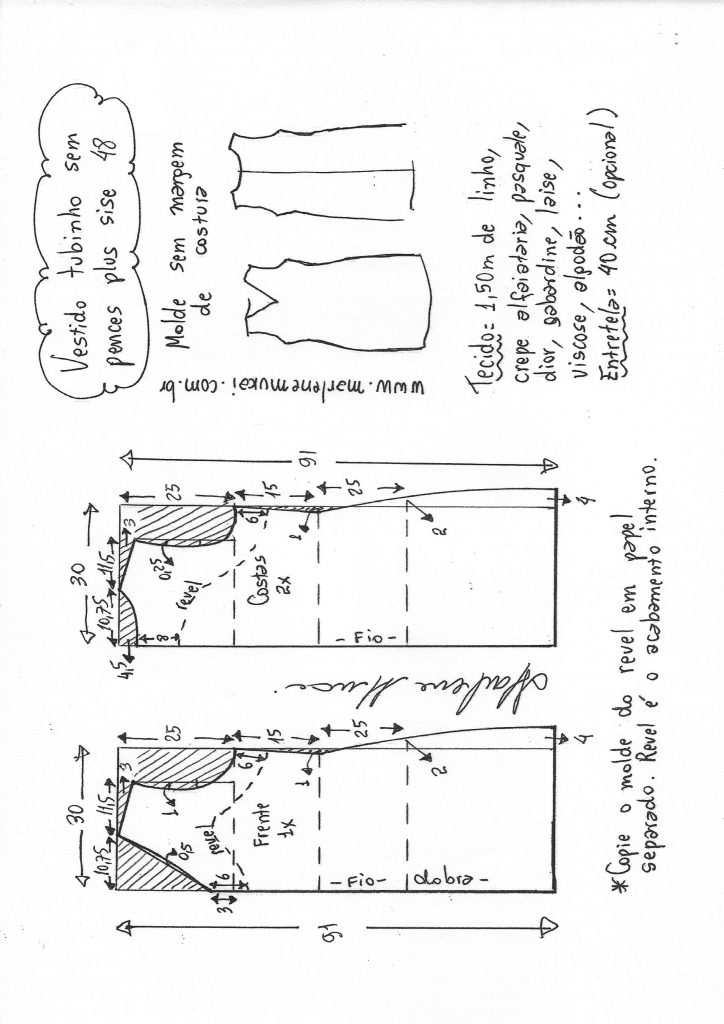 Vestido tubinho sem
pences plus sise 48
Molde sem margem
de costura
www.marlenemukai.com.br
Tecido= 1,50m de linho,
crepe alfaiataria, pasquale,
dior, gabardine, laise,
viscose, algodão...
Entretela= 40cm (opcional)
30
10,75
11,5
3
25
15
25
91
1
0,5
6
6
3
1
2
4
revel
Frente
1x
- Fio -
dobra -
Marlene Mukai
30
10,75
11,5
3
25
15
25
91
4,5
8
0,25
6
1
2
4
revel
Costas
2x
- Fio -
*Copie o molde do revel em papel
separado. Revel é o acabamento interno.